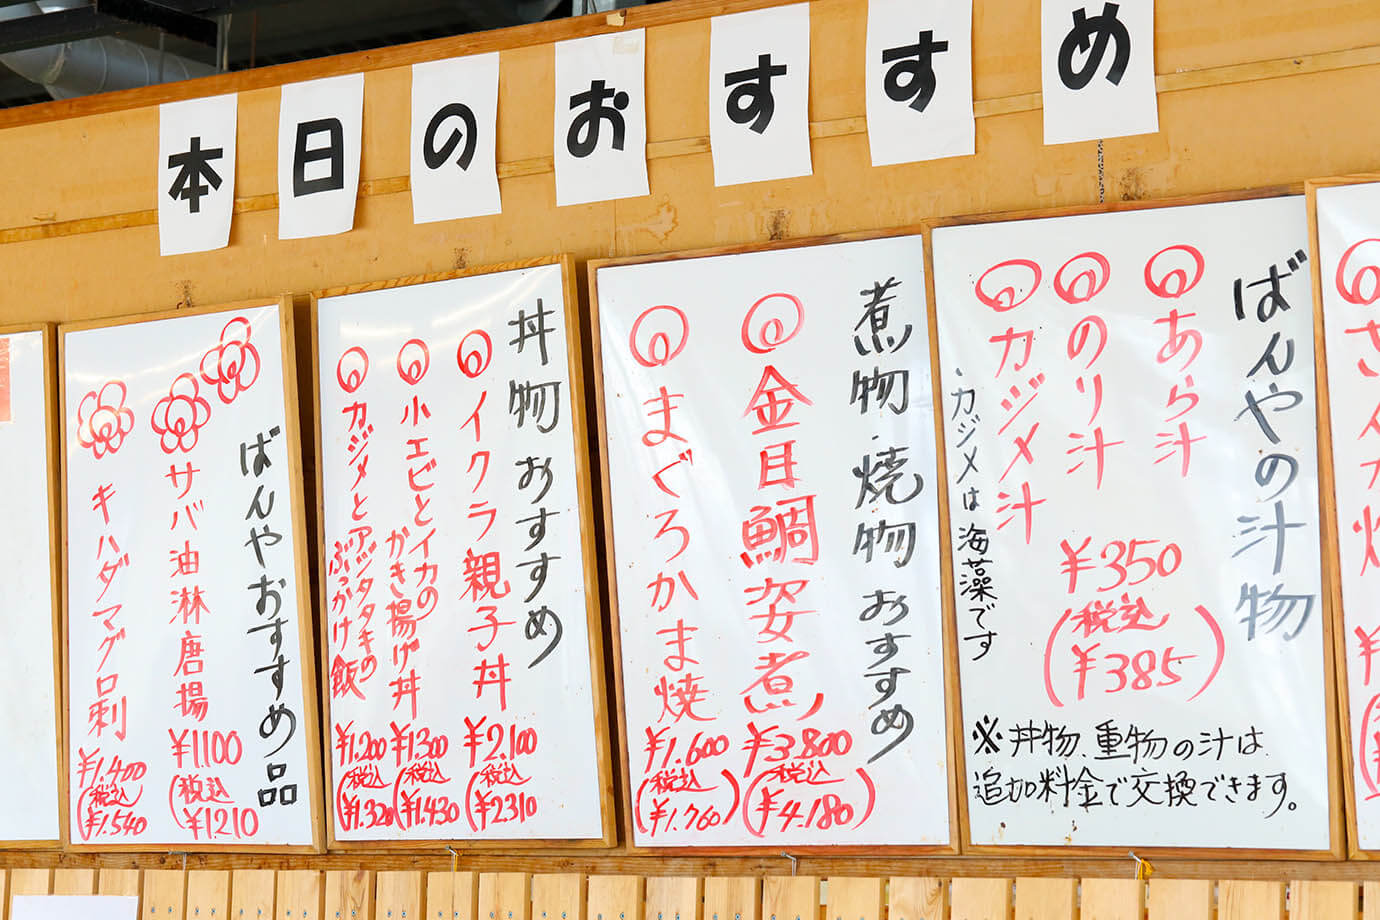 本日のおすすめ
ばんやの汁物
あら汁
のり汁
カジメ汁
・カジメは海藻です
¥350
(税込
¥385)
※丼物、重物の汁は
追加料金で交換できます。
煮物・焼物おすすめ
金目鯛姿煮
¥3.800
(税込
¥4.180)
まぐろかま焼
¥1.600
(税込
¥1.760)
丼物おすすめ
イクラ親子丼
¥2.100
(税込
¥2310
小エビとイカの
かき揚げ丼
¥1300
(税込
¥1.430
カジメとアジタタキの
ぶっかけ飯
¥1.200
(税込
¥1.320
ばんやおすすめ品
サバ油淋唐揚
¥1.100
(税込
¥1210
キハダマグロ刺
¥1.400
(税込
¥1.540